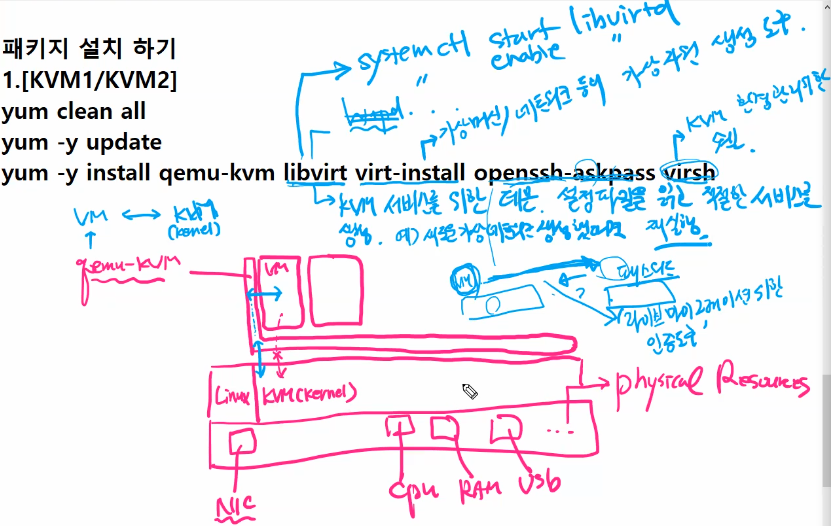 systemctl start libvirtd
" enable "
패키지 설치 하기
1.[KVM1/KVM2]
yum clean all
yum -y update
yum -y install qemu-kvm libvirt virt-install openssh-askpass virsh
가상머신/네트워크 등의 가상자원 생성 도구.
KVM 환경관리 위한
도구.
KVM 서비스를 위한 데몬. 설정파일을 읽고 적절한 서비스를
생성. 예) 새로운 가상네트워크 생성 했다면 재실행.
VM ↔ KVM
(kernel)
qemu-KVM
VM
VM
?
패스워드
라이브 마이그레이션 위한
인증도구
Linux
KVM(kernel)
physical Resources
...
NIC
CPU
RAM
USB